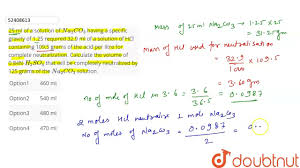 52408613
25 ml of a solution of Na₂CO₃ having a specific
gravity of 1.25 required 32.9 ml of a solution of HCl
containing 109.5 grams of the acid per litre for
complete neutralization. Calculate the volume of
0.84N-H₂SO₄ that will be completely neutralised by
125 grams of the Na₂CO₃ solution.
Option1 460 ml
Option2 540 ml
Option3 480 ml
Option4 470 ml
Mass of 25 ml Na₂CO₃ = 1.25 × 25
= 31.25 gm
Mass of HCl used for neutralisation
= 32.9 / 1000 × 109.5
= 3.60 gm
no of mole of HCl in 3.6 = 3.6 / 36.5 = 0.0987
2 moles HCl neutralize 1 mole Na₂CO₃
no of moles of Na₂CO₃ = 0.0987 / 2 = 0.
doubtnut